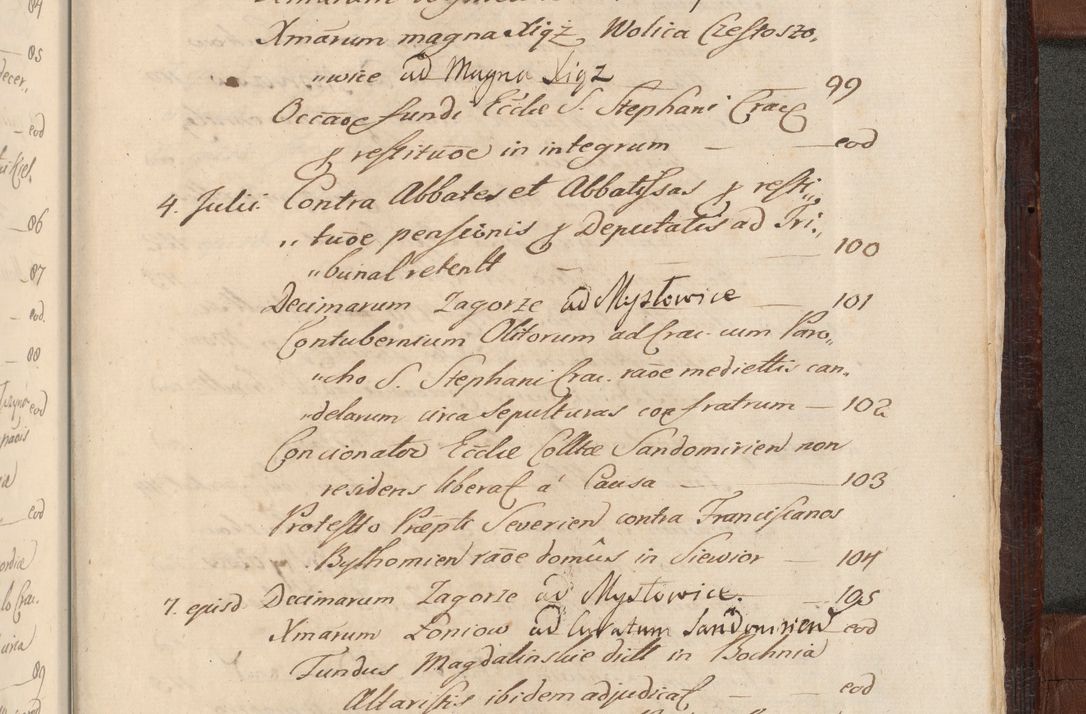 Xmarum magna Xigż, Wolica Czestoszo„
„wice ad Magna Xigz 99
Occaoe fundi Eccliae S. Stephani Crac
ꝑ restituoe in integrum — eod
4. Julii Contra Abbates et Abbatissas ꝑ resti„
„tuoe pensionis ꝑ Deputatis ad Tri„
„bunal retentt — 100
Decimarum Zagorze ad Mysłowice — 101
Contubernium Olitorum ad Crac. cum Paro„
„cho S. Stephani Crac. raoe mediettis can„
„delarum circa sepulturas fratrum — 102
Concionator Eccliae Colltae Sandomirien non
residens liberat a Causa — 103
Protesttio Præpti Severien contra Franciscanos
Bythomien raoe domûs in Siewior — 104
7. ejusd Decimarum Zagorze ad Mysłowice. — 105
Xmarum Łoniow ad Curatum Sandomirien eod
Fundus Magdalinskie dict in Bochnia
Altaristis ibidem adjudicat — eod
04
05
decer„
eod
Kiel.
06
07
eod.
08
eod
eod
Crac.
circa
09